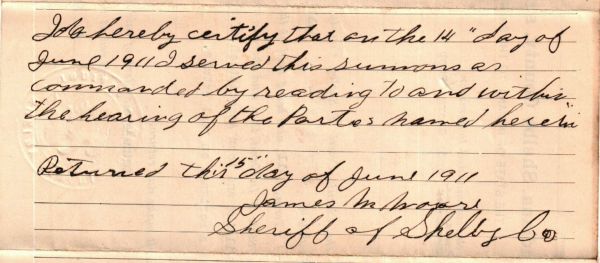 I do hereby certify that on the 14" day of
June 1911 I served this summons as
commanded by reading to and within
the hearing of the Partes named herein
Returned this 15" day of June 1911
James M Moore
Sheriff of Shelby Co